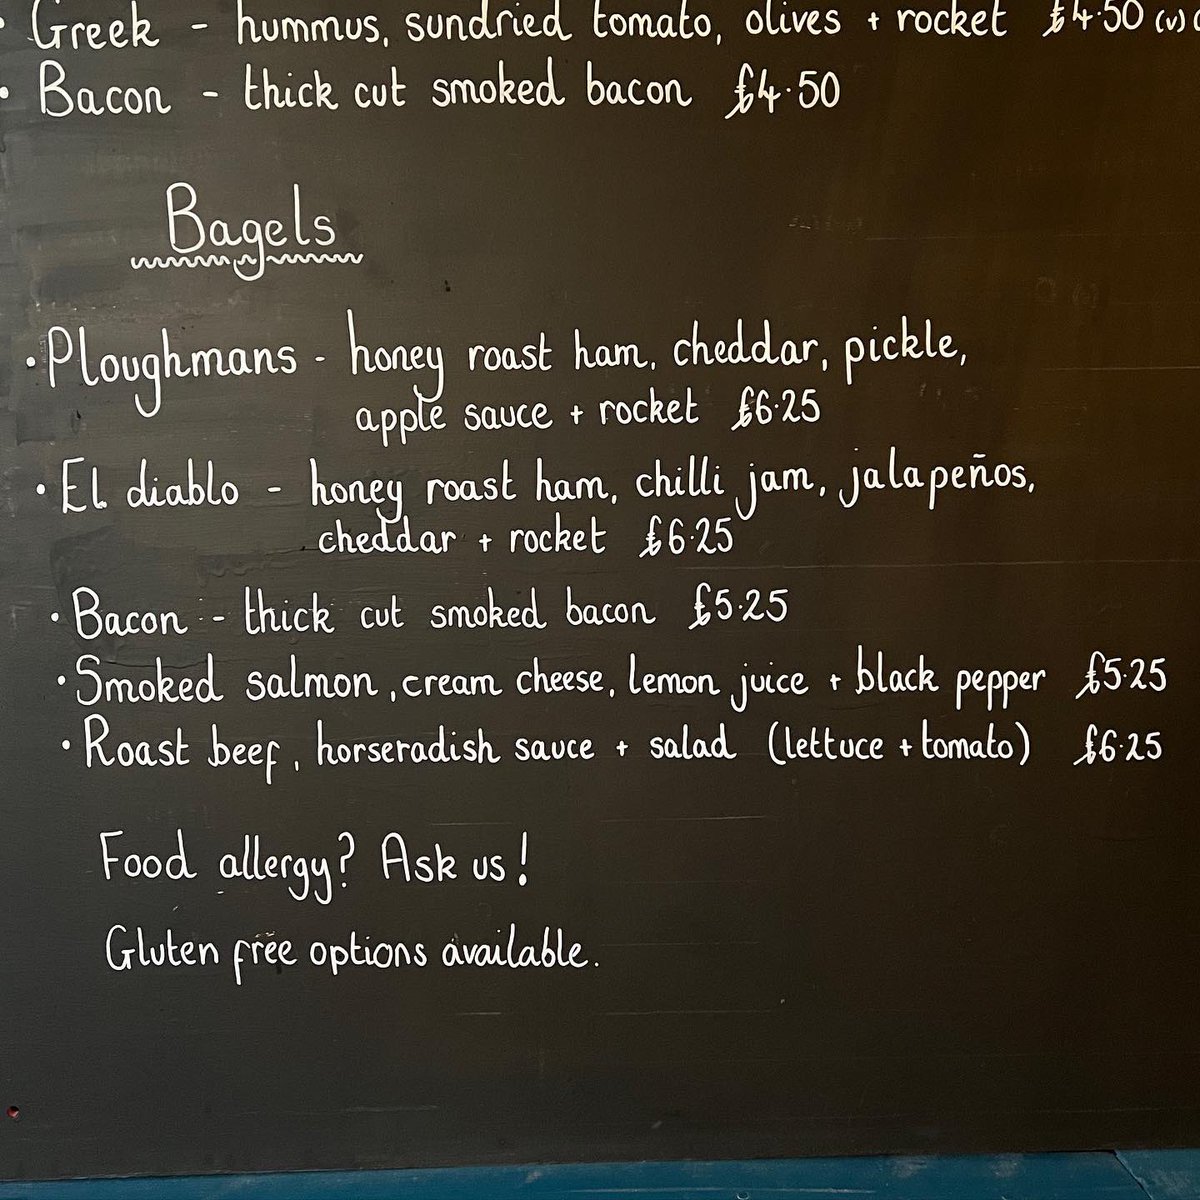 · Greek - hummus, sundried tomato, olives + rocket £4·50 (v)
· Bacon - thick cut smoked bacon £4·50
Bagels
· Ploughmans - honey roast ham, cheddar, pickle,
apple sauce + rocket £6·25
· El diablo - honey roast ham, chilli jam, jalapeños,
cheddar + rocket £6·25
· Bacon - thick cut smoked bacon £5·25
· Smoked salmon, cream cheese, lemon juice + black pepper £5·25
· Roast beef, horseradish sauce + salad (lettuce + tomato) £6·25
Food allergy? Ask us!
Gluten free options available.